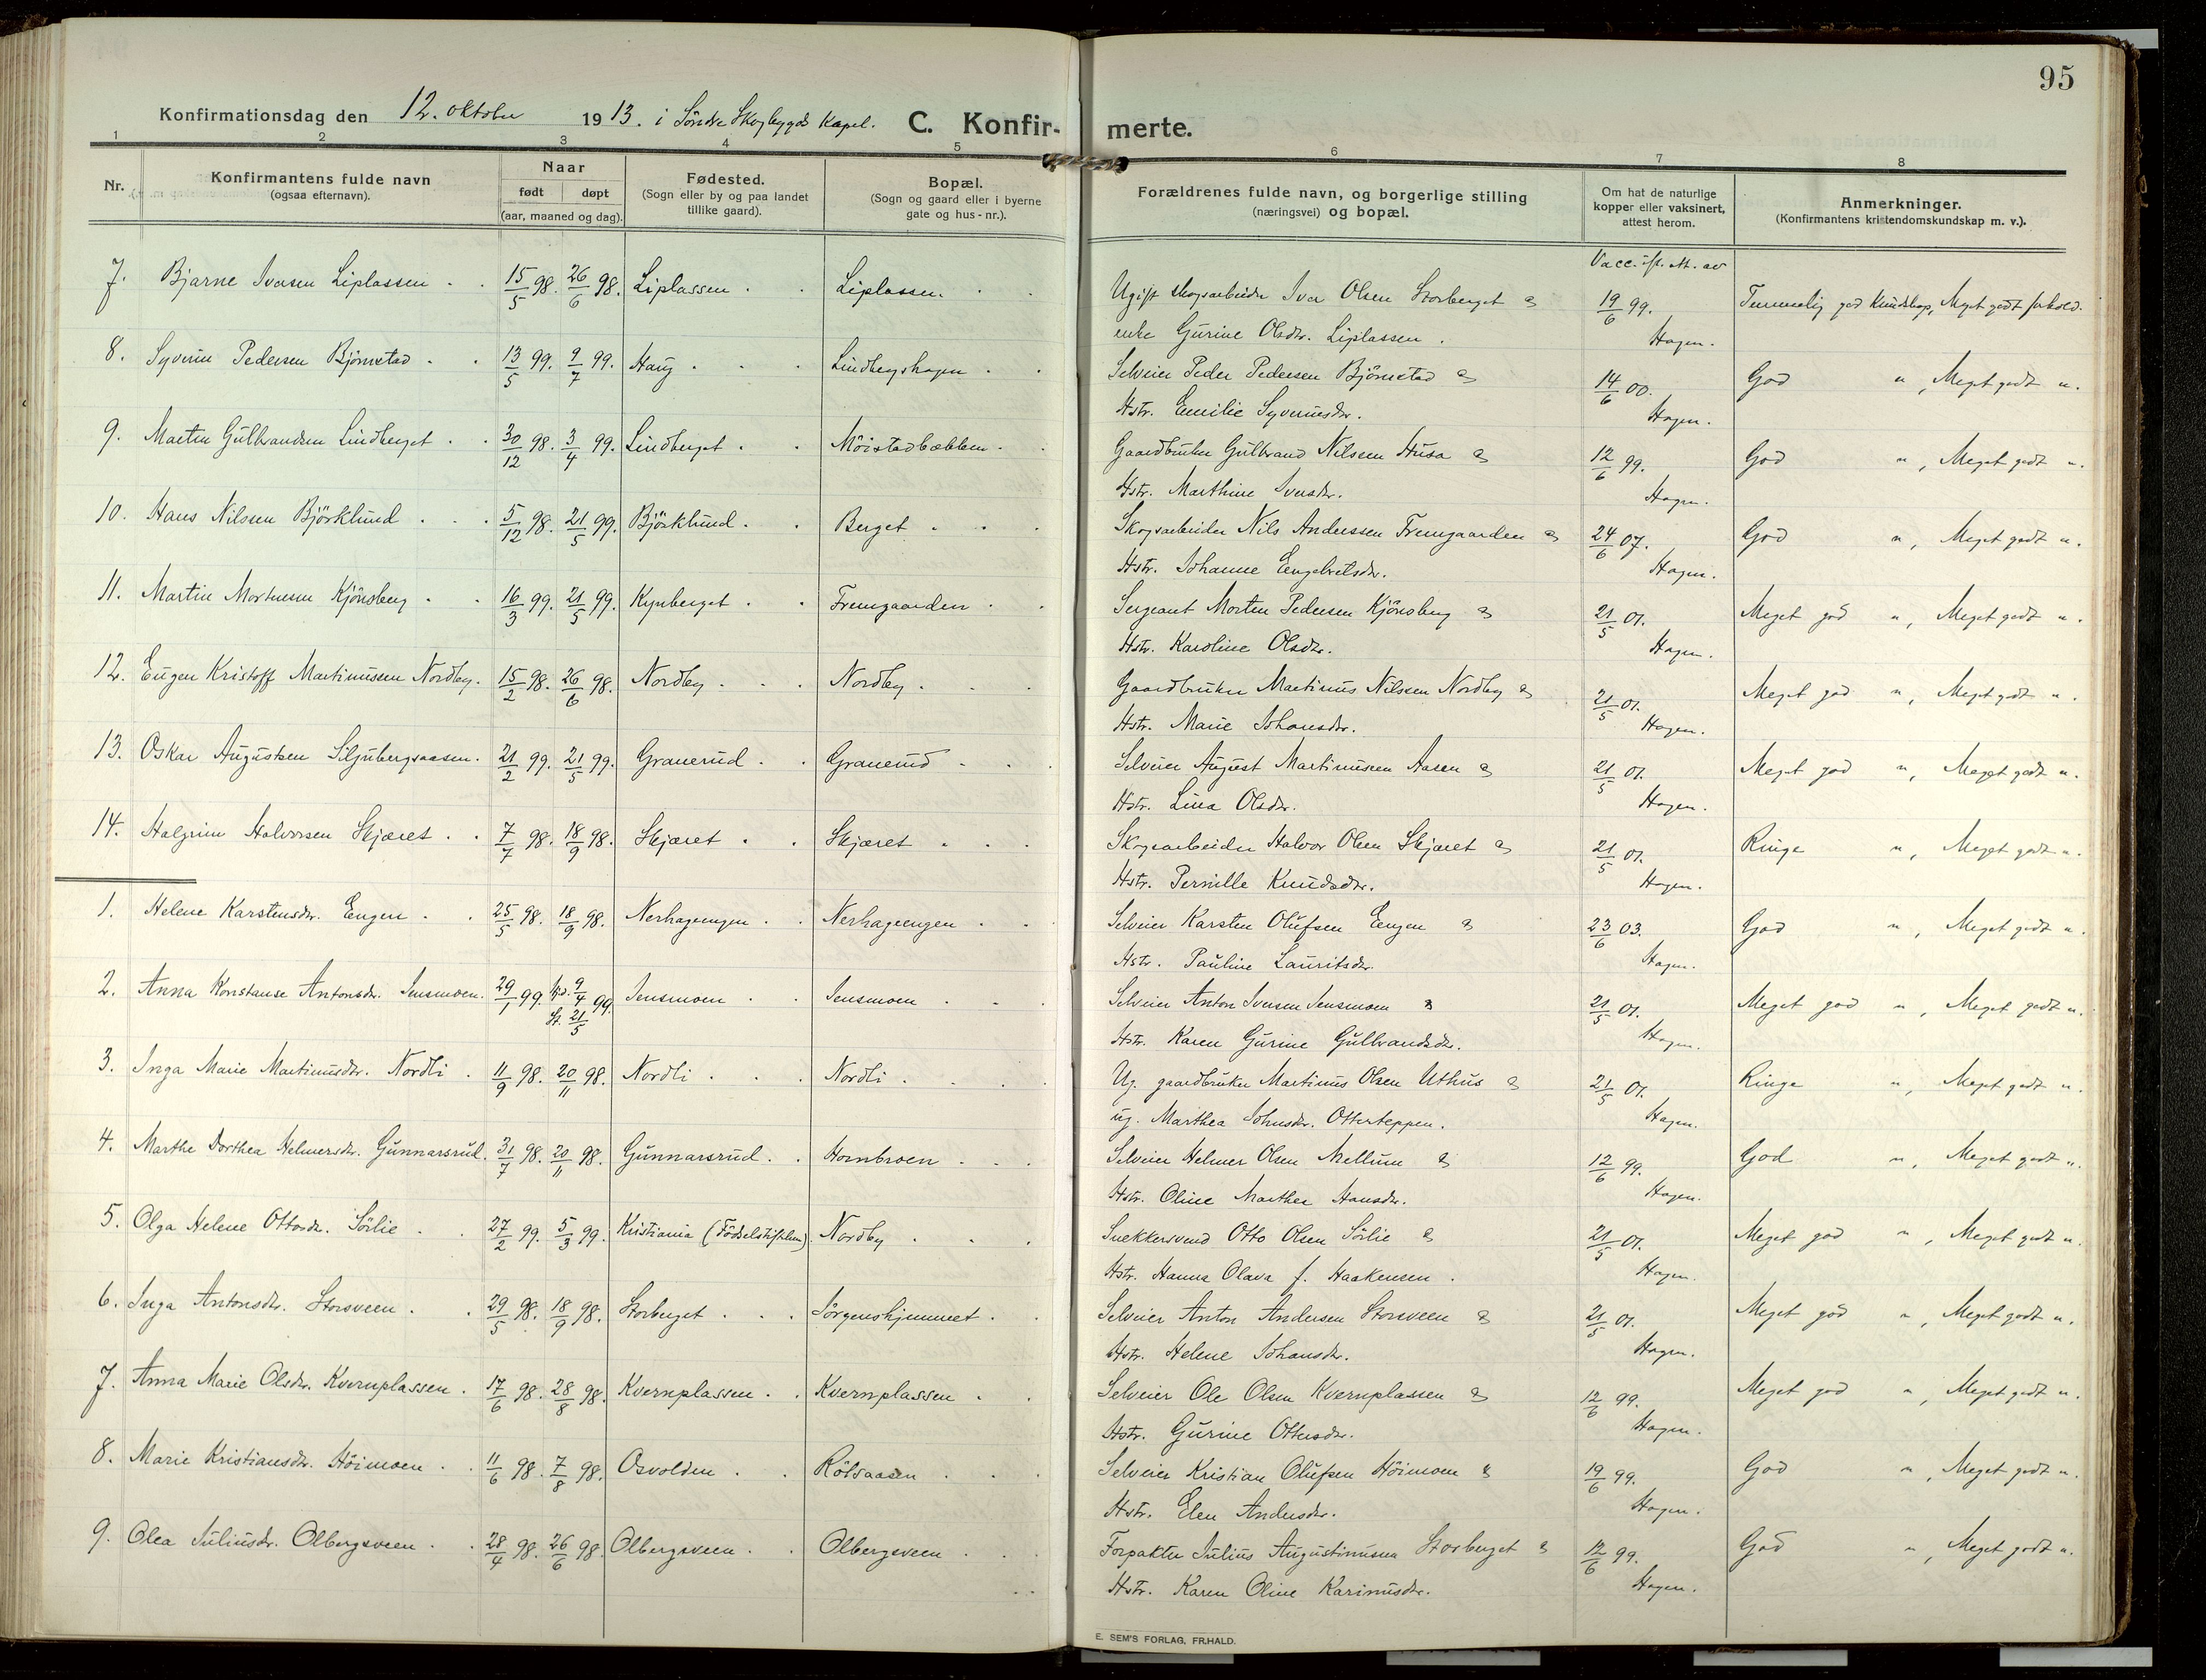 95
Konfirmationsdag den 12. oktober 1913. i Söndre Skogbygds Kapel. C. Konfir-merte.
1 2 3 4 5 6 7 8
Nr. Konfirmantens fulde navn (ogsaa efternavn). Naar født døpt (aar, maaned og dag). Fødested. (Sogn eller by og paa landet tillike gaard). Bopæl. (Sogn og gaard eller i byerne gate og hus-nr.). Forældrenes fulde navn, og borgerlige stilling (næringsvei) og bopæl. Om hat de naturlige kopper eller vaksinert, attest herom. Anmerkninger. (Konfirmantens kristendomskundskap m. v.).
Vacc. ifl. att. av
7. Bjarne Iversen Liplassen 15/5 98. 26/6 98. Liplassen Liplassen Ugift skogsarbeider Iver Olsen Storberget & 19/6 99. Temmelig god kundskap, Meget godt forhold.
enke Gurine Olsdtr. Liplassen. Hagen.
8. Syverin Pedersen Björnstad 13/5 99. 9/7 99. Haug Lindbergshagen Selveier Peder Pedersen Björnstad & 14/6 00. God ", Meget godt ".
Hstr. Emilie Syverinsdtr. Hagen.
9. Martin Gulbrandsen Lindberget 30/12 98. 3/4 99. Lindberget Möistadbakken Gaardbruker Gulbrand Nilssen Husa & 12/6 99. God ", Meget godt ".
Hstr. Marthine Iversdtr. Hagen.
10. Hans Nilssen Björklund 5/12 98. 21/5 99. Björklund Berget Skogsarbeider Nils Anderssen Fremgaarden & 24/6 07. God ", Meget godt ".
Hstr. Johanne Engebretsdtr. Hagen.
11. Martin Mortensen Kjönsberg 16/3 99. 21/5 99. Kynberget Fremgaarden Sergeant Morten Pedersen Kjönsberg & 21/5 01. Meget god ", Meget godt ".
Hstr. Karoline Olsdtr. Hagen.
12. Eugen Kristoff Martinussen Nordby. 15/2 98. 26/6 98. Nordby Nordby Gaardbruker Martinus Nilssen Nordby & 21/5 01. Meget god ", Meget godt ".
Hstr. Marie Johansdtr. Hagen.
13. Oskar Augustsen Siljubergsaasen. 21/2 99. 21/5 99. Granerud Granerud Selveier August Martinussen Aasen & 21/5 01. Meget god ", Meget godt ".
Hstr. Lina Olsdtr. Hagen.
14. Halgrim Halvorsen Skjæret 7/7 98. 18/9 98. Skjæret Skjæret Skogsarbeider Halvor Olsen Skjæret & 21/5 01. Ringe ", Meget godt ".
Hstr. Pernille Knudsdtr. Hagen.
1. Helene Karstensdtr. Engen 25/5 98. 18/9 98. Nerhagengen Nerhageengen Selveier Karsten Olufsen Engen & 23/6 03. God ", Meget godt ".
Hstr. Pauline Lauritsdtr. Hagen.
2. Anna Konstanse Antonsdtr. Jensmoen. 29/1 99. hjd. 9/4 99. Jensmoen Jensmoen Selveier Anton Iversen Jensmoen & 21/5 01. Meget god ", Meget godt ".
St. 21/5 Hstr. Karen Gurine Gulbrandsdtr. Hagen.
3. Inga Marie Martinusdtr. Nordli 11/9 98. 20/11 98. Nordli Nordli Ug. gaardbruker Martinus Olsen Uthus & 21/5 01. Ringe ", Meget godt ".
ug. Marthea Johnsdtr. Otterteppen. Hagen.
4. Marthe Dorthea Helmersdtr. Gunnarsrud. 31/7 98. 20/11 98. Gunnarsrud Hornbroen Selveier Helmer Olsen Mellum & 12/6 99. God ", Meget godt ".
Hstr. Oline Marthea Hansdtr. Hagen.
5. Olga Helene Ottosdtr. Sörlie 27/2 99. 5/3 99. Kristiania (Födselstiftelsen) Nordby Snekkersvend Otto Olsen Sörlie & 21/5 01. Meget god ", Meget godt ".
Hstr. Hanna Olava f. Haakensen. Hagen.
6. Inga Antonsdtr. Storsveen 29/5 98. 18/9 98. Storberget Jörgenshjemmet Selveier Anton Andersen Storsveen & 21/5 01. Meget god ", Meget godt ".
Hstr. Helene Johansdtr. Hagen.
7. Anna Marie Olsdtr. Kvernplassen 17/6 98. 28/8 98. Kvernplassen Kvernplassen Selveier Ole Olsen Kvernplassen & 12/6 99. Meget god ", Meget godt ".
Hstr. Gurine Ottersdtr. Hagen.
8. Marie Kristiansdtr. Höimoen 11/6 98. 7/8 98. Osvolden Rölsaasen Selveier Kristian Olufsen Höimoen & 19/6 99. God ", Meget godt ".
Hstr. Elen Andersdtr. Hagen.
9. Olea Juliusdr. Olbergsveen 28/4 98. 26/6 98. Olbergsveen Olbergsveen Forpakter Julius Augustinusen Storberget & 12/6 99. God ", Meget godt ".
Hstr. Karen Oline Karinusdtr. Hagen.
E. SEM'S FORLAG, FR.HALD.